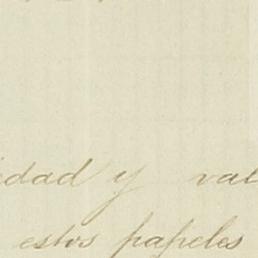 idad y val
estos papeles